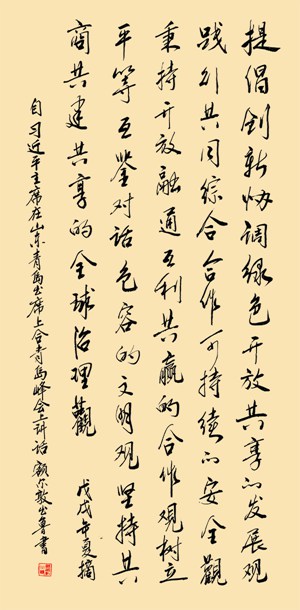 提倡创新协调绿色开放共享的发展观
践行共同综合合作可持续的安全观
秉持开放融通互利共赢的合作观树立
平等互鉴对话包容的文明观坚持共
商共建共享的全球治理觀
戊戌年夏摘
自习近平主席在山东青島出席上合青島峰会上讲话 额尔敦出鲁書